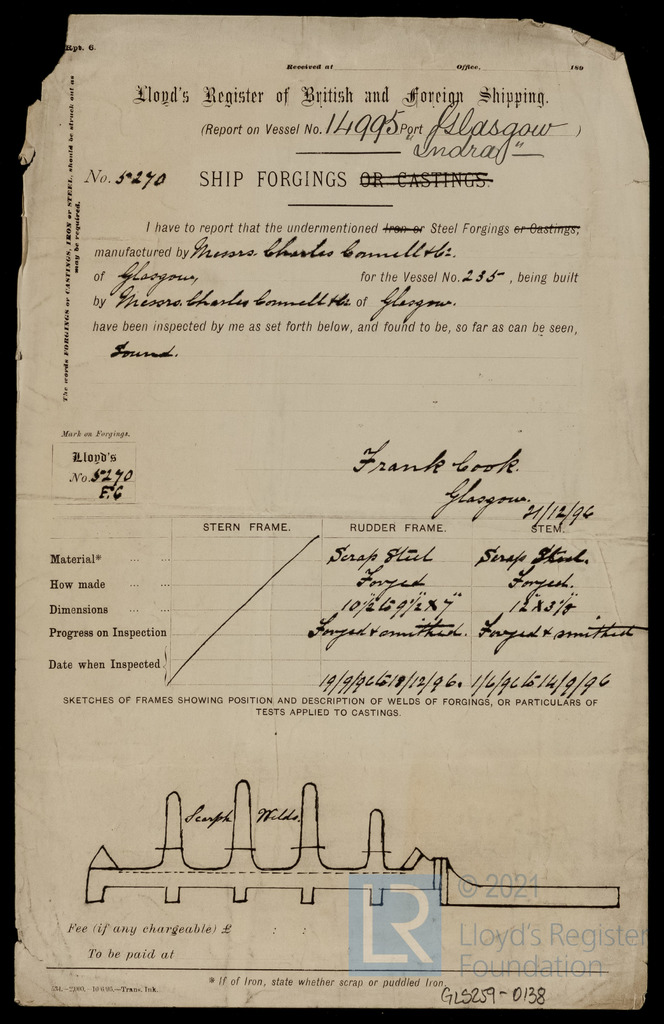 Rpt. 6.
Received at Office, 189
Lloyd's Register of British and Foreign Shipping.
(Report on Vessel No. 14995 Port Glasgow)
"Indra"
No. 5270 SHIP FORGINGS OR CASTINGS.
The words FORGINGS or CASTINGS, IRON or STEEL, should be struck out as
may be required.
I have to report that the undermentioned Iron or Steel Forgings or Castings,
manufactured by Messrs. Charles Connell & Co.
of Glasgow, for the Vessel No. 235, being built
by Messrs. Charles Connell & Co of Glasgow.
have been inspected by me as set forth below, and found to be, so far as can be seen,
Sound.
Mark on Forgings.
Lloyd's
No. 5270
F.C
Frank Cook.
Glasgow.
21/12/96
STERN FRAME. RUDDER FRAME. STEM.
Material* ... ... Scrap Steel Scrap Steel.
How made ... ... Forged Forged.
Dimensions ... ... 10½ to 9½ x 7" 12 x 3⅛
Progress on Inspection Forged & smithed. Forged & smithed
Date when Inspected 19/9/96 to 18/12/96. 1/6/96 to 14/9/96
SKETCHES OF FRAMES SHOWING POSITION AND DESCRIPTION OF WELDS OF FORGINGS, OR PARTICULARS OF
TESTS APPLIED TO CASTINGS.
Scarph Welds.
Fee (if any chargeable) £ : :
To be paid at
* If of Iron, state whether scrap or puddled Iron.
Trans. Ink.
GLS259-0138
LR
© 2021
Lloyd's Register
Foundation